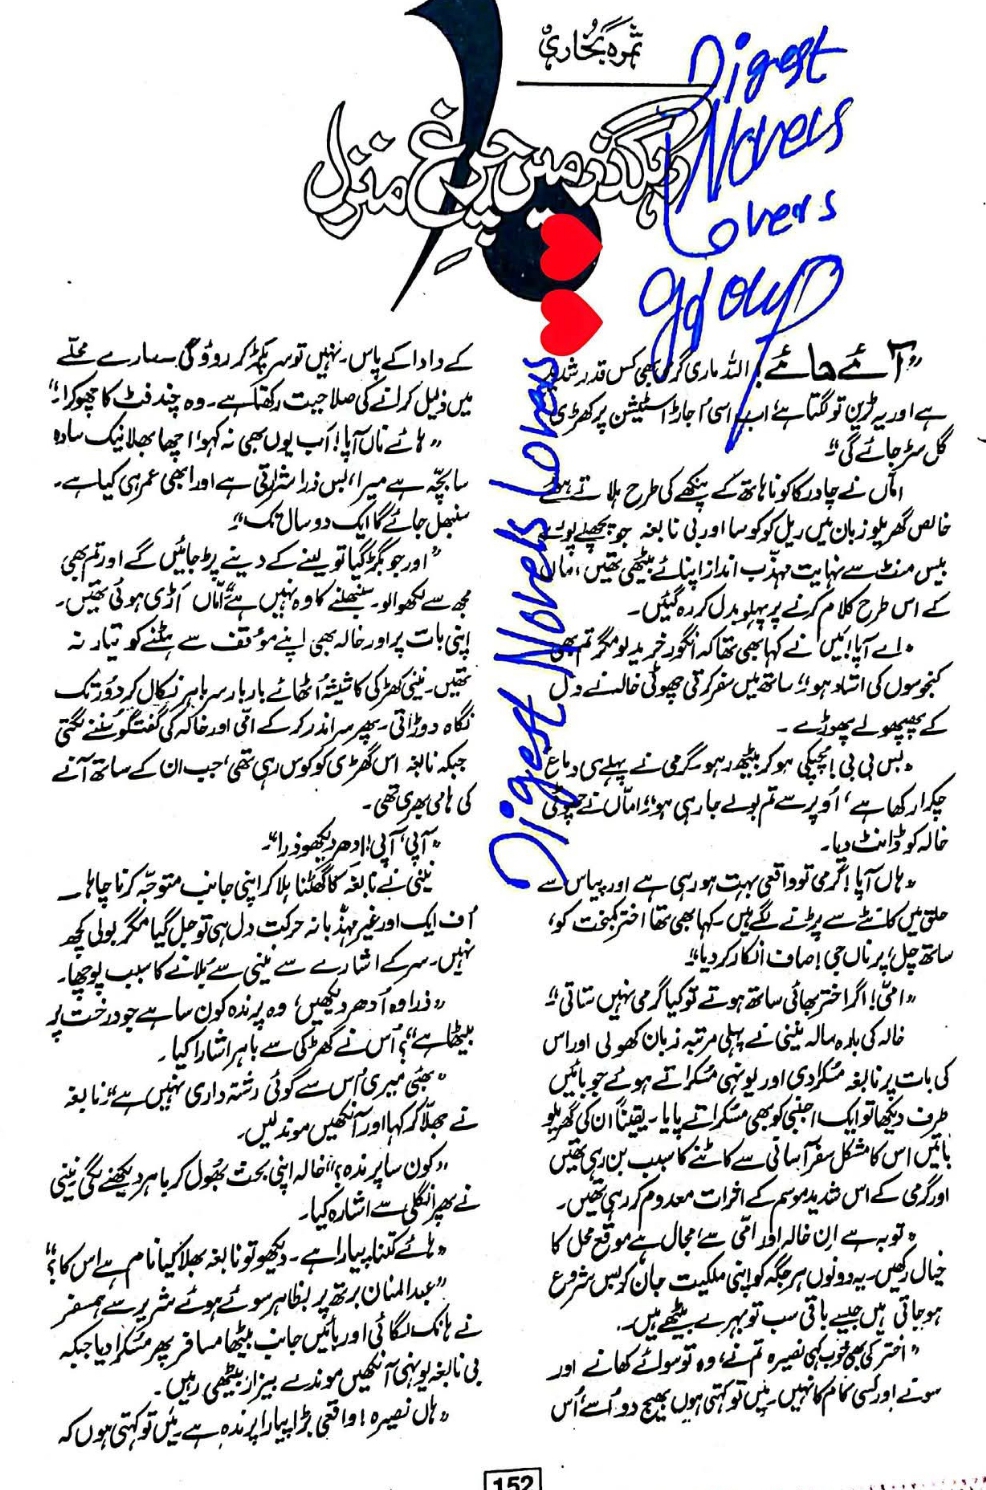 ثمرہ بخاری
رہگذر میں چراغِ منزل
Digest
Novels
Lovers
group
Digest Novels Lovers
"آئے ہائے! اللہ ماری گرمی بھی کس قدر شدید
ہے اور یہ ٹرین تو لگتا ہے اب اسی اجاڑ اسٹیشن پر کھڑی
گل سڑ جائے گی"
اماں نے چادر کا کونا ہاتھ کے پنکھے کی طرح ہلاتے ہوئے
خالص گھریلو زبان میں ریل کو کوسا اور بی نابغہ جو پچھلے پورے
بیس منٹ سے نہایت مہذب انداز اپنائے بیٹھی تھیں، اماں
کے اس طرح کلام کرنے پر پہلو بدل کر رہ گئیں۔
"اے آپا! میں نے کہا بھی تھا کہ انگور خرید لو مگر تم بھی
کنجوسوں کی استاد ہو" ساتھ میں سفر کرتی چھوٹی خالہ نے دل
کے پھپھولے پھوڑے۔
"بس بی بی! چپکی ہو کر بیٹھ رہو۔ گرمی نے پہلے ہی دماغ
چکرا رکھا ہے، اوپر سے تم بولے جا رہی ہو" اماں نے چھوٹی
خالہ کو ڈانٹ دیا۔
"ہاں آپا! گرمی تو واقعی بہت ہو رہی ہے اور پیاس سے
حلق میں کانٹے سے پڑنے لگے ہیں۔ کہا بھی تھا اختر کمبخت کو،
ساتھ چل، پر ناں جی! صاف انکار کر دیا"
"امی! اگر اختر بھائی ساتھ ہوتے تو کیا گرمی نہیں ستاتی"
خالہ کی بارہ سالہ نینی نے پہلی مرتبہ زبان کھولی اور اس
کی بات پر نابغہ مسکرا دی اور یونہی مسکراتے ہوئے جو بائیں
طرف دیکھا تو ایک اجنبی کو بھی مسکراتے پایا۔ یقیناً ان کی گھریلو
باتیں اس کا مشکل سفر آسانی سے کاٹنے کا سبب بن رہی تھیں
اور گرمی کے اس شدید موسم کے اثرات معدوم کر رہی تھیں۔
"توبہ ہے ان خالہ اور امی سے، مجال ہے موقع محل کا
خیال رکھیں۔ یہ دونوں ہر جگہ کو اپنی ملکیت جان کر بس شروع
ہو جاتی ہیں جیسے باقی سب تو بہرے بیٹھے ہیں۔
"اختر کی بھی خوب کہی نصیرہ تم نے، وہ تو سوائے کھانے اور
سونے اور کسی کام کا نہیں۔ میں تو کہتی ہوں بھیج دو اُسے اُس
کے دادا کے پاس۔ نہیں تو سر پکڑ کر روؤ گی۔ سارے محلّے
میں ذلیل کرانے کی صلاحیت رکھتا ہے۔ وہ چند فٹ کا چھوکرا۔"
"ہائے ناں آپا! اَب یوں بھی نہ کہو! اچھا بھلا نیک سادہ
سا بچہ ہے میرا، بس ذرا شرارتی ہے اور ابھی عمر ہی کیا ہے۔
سنبھل جائے گا ایک دو سال تک"
"اور جو بگڑ گیا تو لینے کے دینے پڑ جائیں گے اور تم بھی
مجھ سے لکھوا لو۔ سنبھلنے کا وہ نہیں ہے" اماں اَڑی ہوئی تھیں۔
اپنی بات پر اور خالہ بھی اپنے مؤقف سے ہٹنے کو تیار نہ
تھیں۔ نینی کھڑکی کا شیشہ اُٹھائے بار بار سر باہر نکال کر دُور تک
نگاہ دوڑاتی۔ پھر سر اندر کر کے امی اور خالہ کی گفتگو سننے لگتی
جبکہ نابغہ اس گھڑی کو کوس رہی تھی، جب ان کے ساتھ آنے
کی ہامی بھری تھی۔
"آپی، آپی! ادھر دیکھو ذرا"۔
نینی نے نابغہ کا گھٹنا ہلا کر اپنی جانب متوجہ کرنا چاہا۔
اُف ایک اور غیر مہذبانہ حرکت دل ہی تو جل گیا مگر بولی کچھ
نہیں۔ سر کے اشارے سے نینی سے بُلانے کا سبب پوچھا۔
"ذرا وہ اُدھر دیکھیں، وہ پرندہ کون سا ہے جو درخت پر
بیٹھا ہے"؟ اُس نے کھڑکی سے باہر اشارا کیا۔
"بھئی میری اُس سے کوئی رشتہ داری نہیں ہے" نابغہ
نے جھلّا کر کہا اور آنکھیں موند لیں۔
"کون سا پرندہ؟" خالہ اپنی بحث بھُول کر باہر دیکھنے لگی نینی
نے پھر انگلی سے اشارہ کیا۔
"ہائے کتنا پیارا ہے۔ دیکھو تو نابغہ بھلا کیا نام ہے اس کا؟"
"عبدالمنان برتھ پر بظاہر سوئے ہوئے شریر سے ہمسفر
نے ہانک لگائی اور بائیں جانب بیٹھا مسافر پھر مسکرا دیا جبکہ
بی نابغہ یونہی آنکھیں موندے بیزار بیٹھی رہیں۔
"ہاں نصیرہ! واقعی بڑا پیارا پرندہ ہے میں تو کہتی ہوں کہ
152